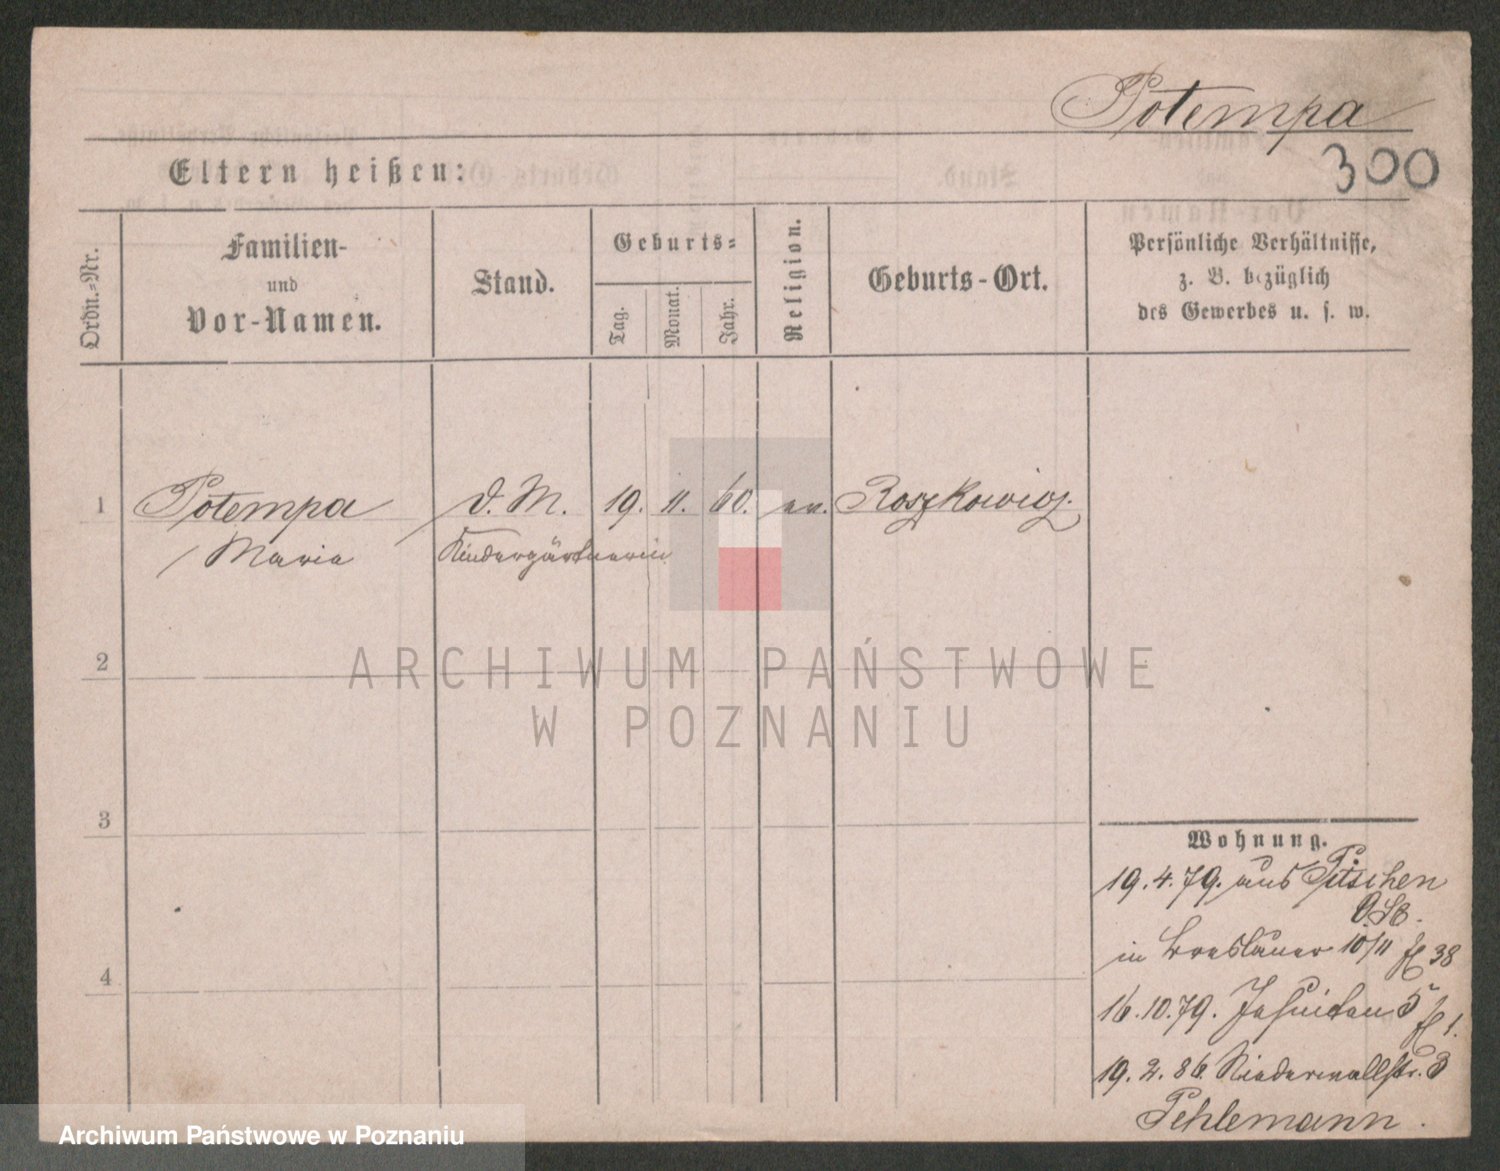 Potempa
300
Eltern heißen:
Ordn.-Nr.
Familien-
und
Vor-Namen.
Stand.
Geburts-
Tag.
Monat.
Jahr.
Religion.
Geburts-Ort.
Persönliche Verhältnisse,
z. B. bezüglich
des Gewerbes u. s. w.
1 Potempa d. M. 19. 11. 60. ev. Roszkowicz.
Maria Kindergärtnerin
2
ARCHIWUM PAŃSTWOWE
W POZNANIU
3
Wohnung.
19.4.79. aus Pitschen
O.S.
in Breslauer 10/11 38
4
16.10.79. Jesuiten 5 1.
19.2.86. Niederwallstr. 3
Pehlemann.
Archiwum Państwowe w Poznaniu